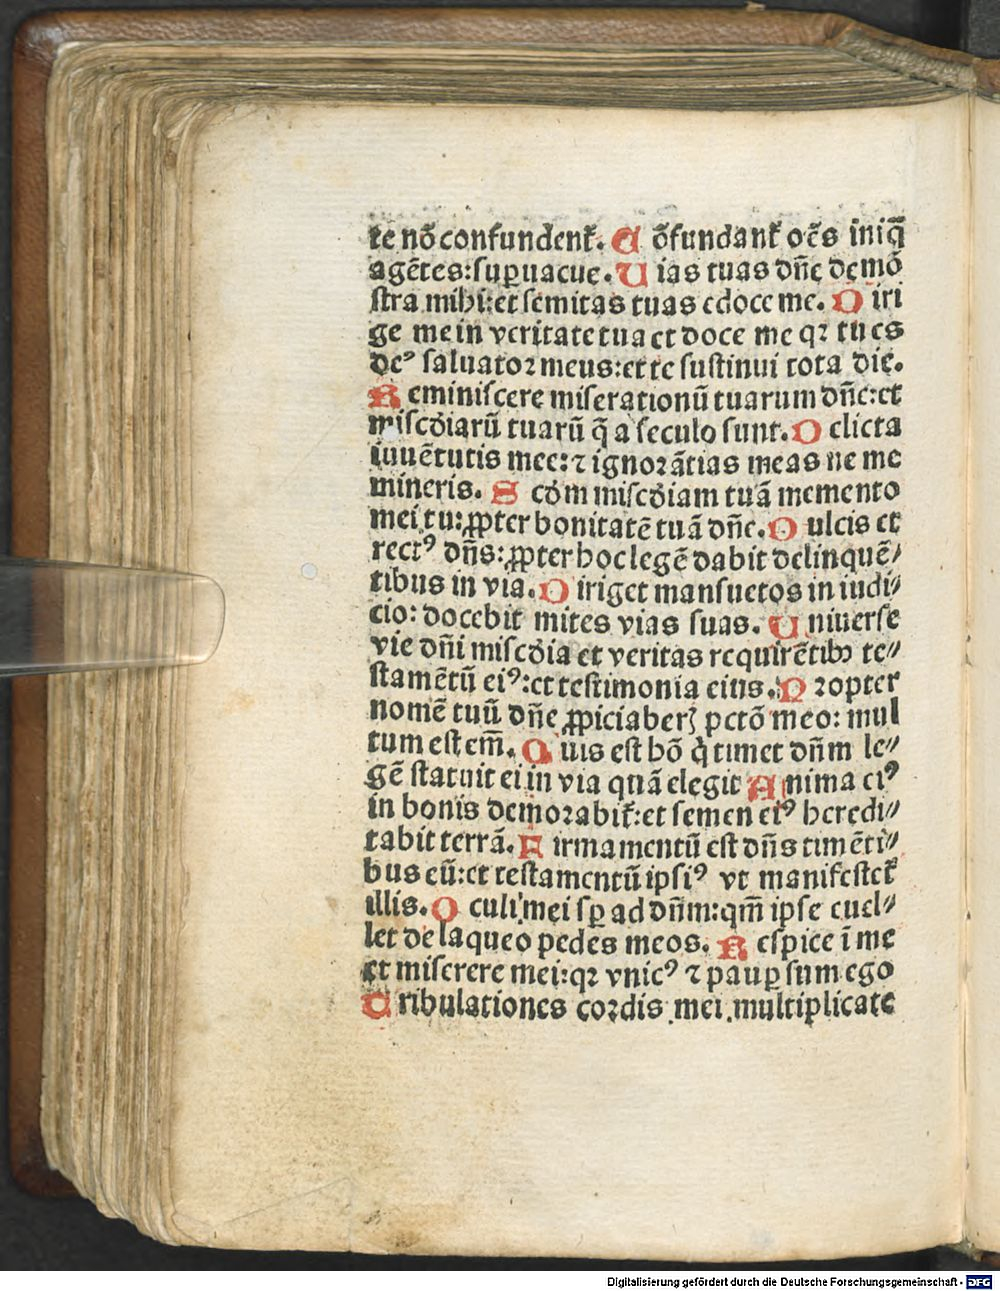 te nō confundent᷑. C ōfundant᷑ oēs iniq̄
agētes: sup̱uacue. U ias tuas dn̄e demō
stra mihi: et semitas tuas edoce me. D iri
ge me in veritate tua et doce me qꝛ tu es
deꝰ saluatoꝛ meus: et te sustinui tota die.
R eminiscere miserationū tuarum dn̄e: et
misc̄diarū tuarū q̄ a seculo sunt. D elicta
iuuētutis mee: ⁊ ignoꝛātias meas ne me
mineris. S cd̄m misc̄diam tuā memento
mei tu: ꝓpter bonitatē tuā dn̄e. D ulcis et
rectꝰ dn̄s: ꝓpter hoc legē dabit delinquē⸗
tibus in via. D iriget mansuetos in iudi⸗
cio: docebit mites vias suas. U niuerse
vie dn̄i misc̄dia et veritas requirētibꝰ te⸗
stamētū eiꝰ: et testimonia eius. P ꝛopter
nomē tuū dn̄e ꝓpiciaberꝭ pctō meo: mul
tum est em̄. Q uis est hō q̇ timet dn̄m le⸗
gē statuit ei in via quā elegit A nima eiꝰ
in bonis demoꝛabit᷑: et semen eiꝰ heredi⸗
tabit terrā. F irmamentū est dn̄s timēti⸗
bus eū: et testamentū ipsiꝰ vt manifestet᷑
illis. O culi mei sp̄ ad dn̄m: qm̄ ipse euel⸗
let de laqueo pedes meos. R espice ī me
et miserere mei: qꝛ vnicꝰ ⁊ paup̱ sum ego
T ribulationes coꝛdis mei multiplicate
Digitalisierung gefördert durch die Deutsche Forschungsgemeinschaft - DFG